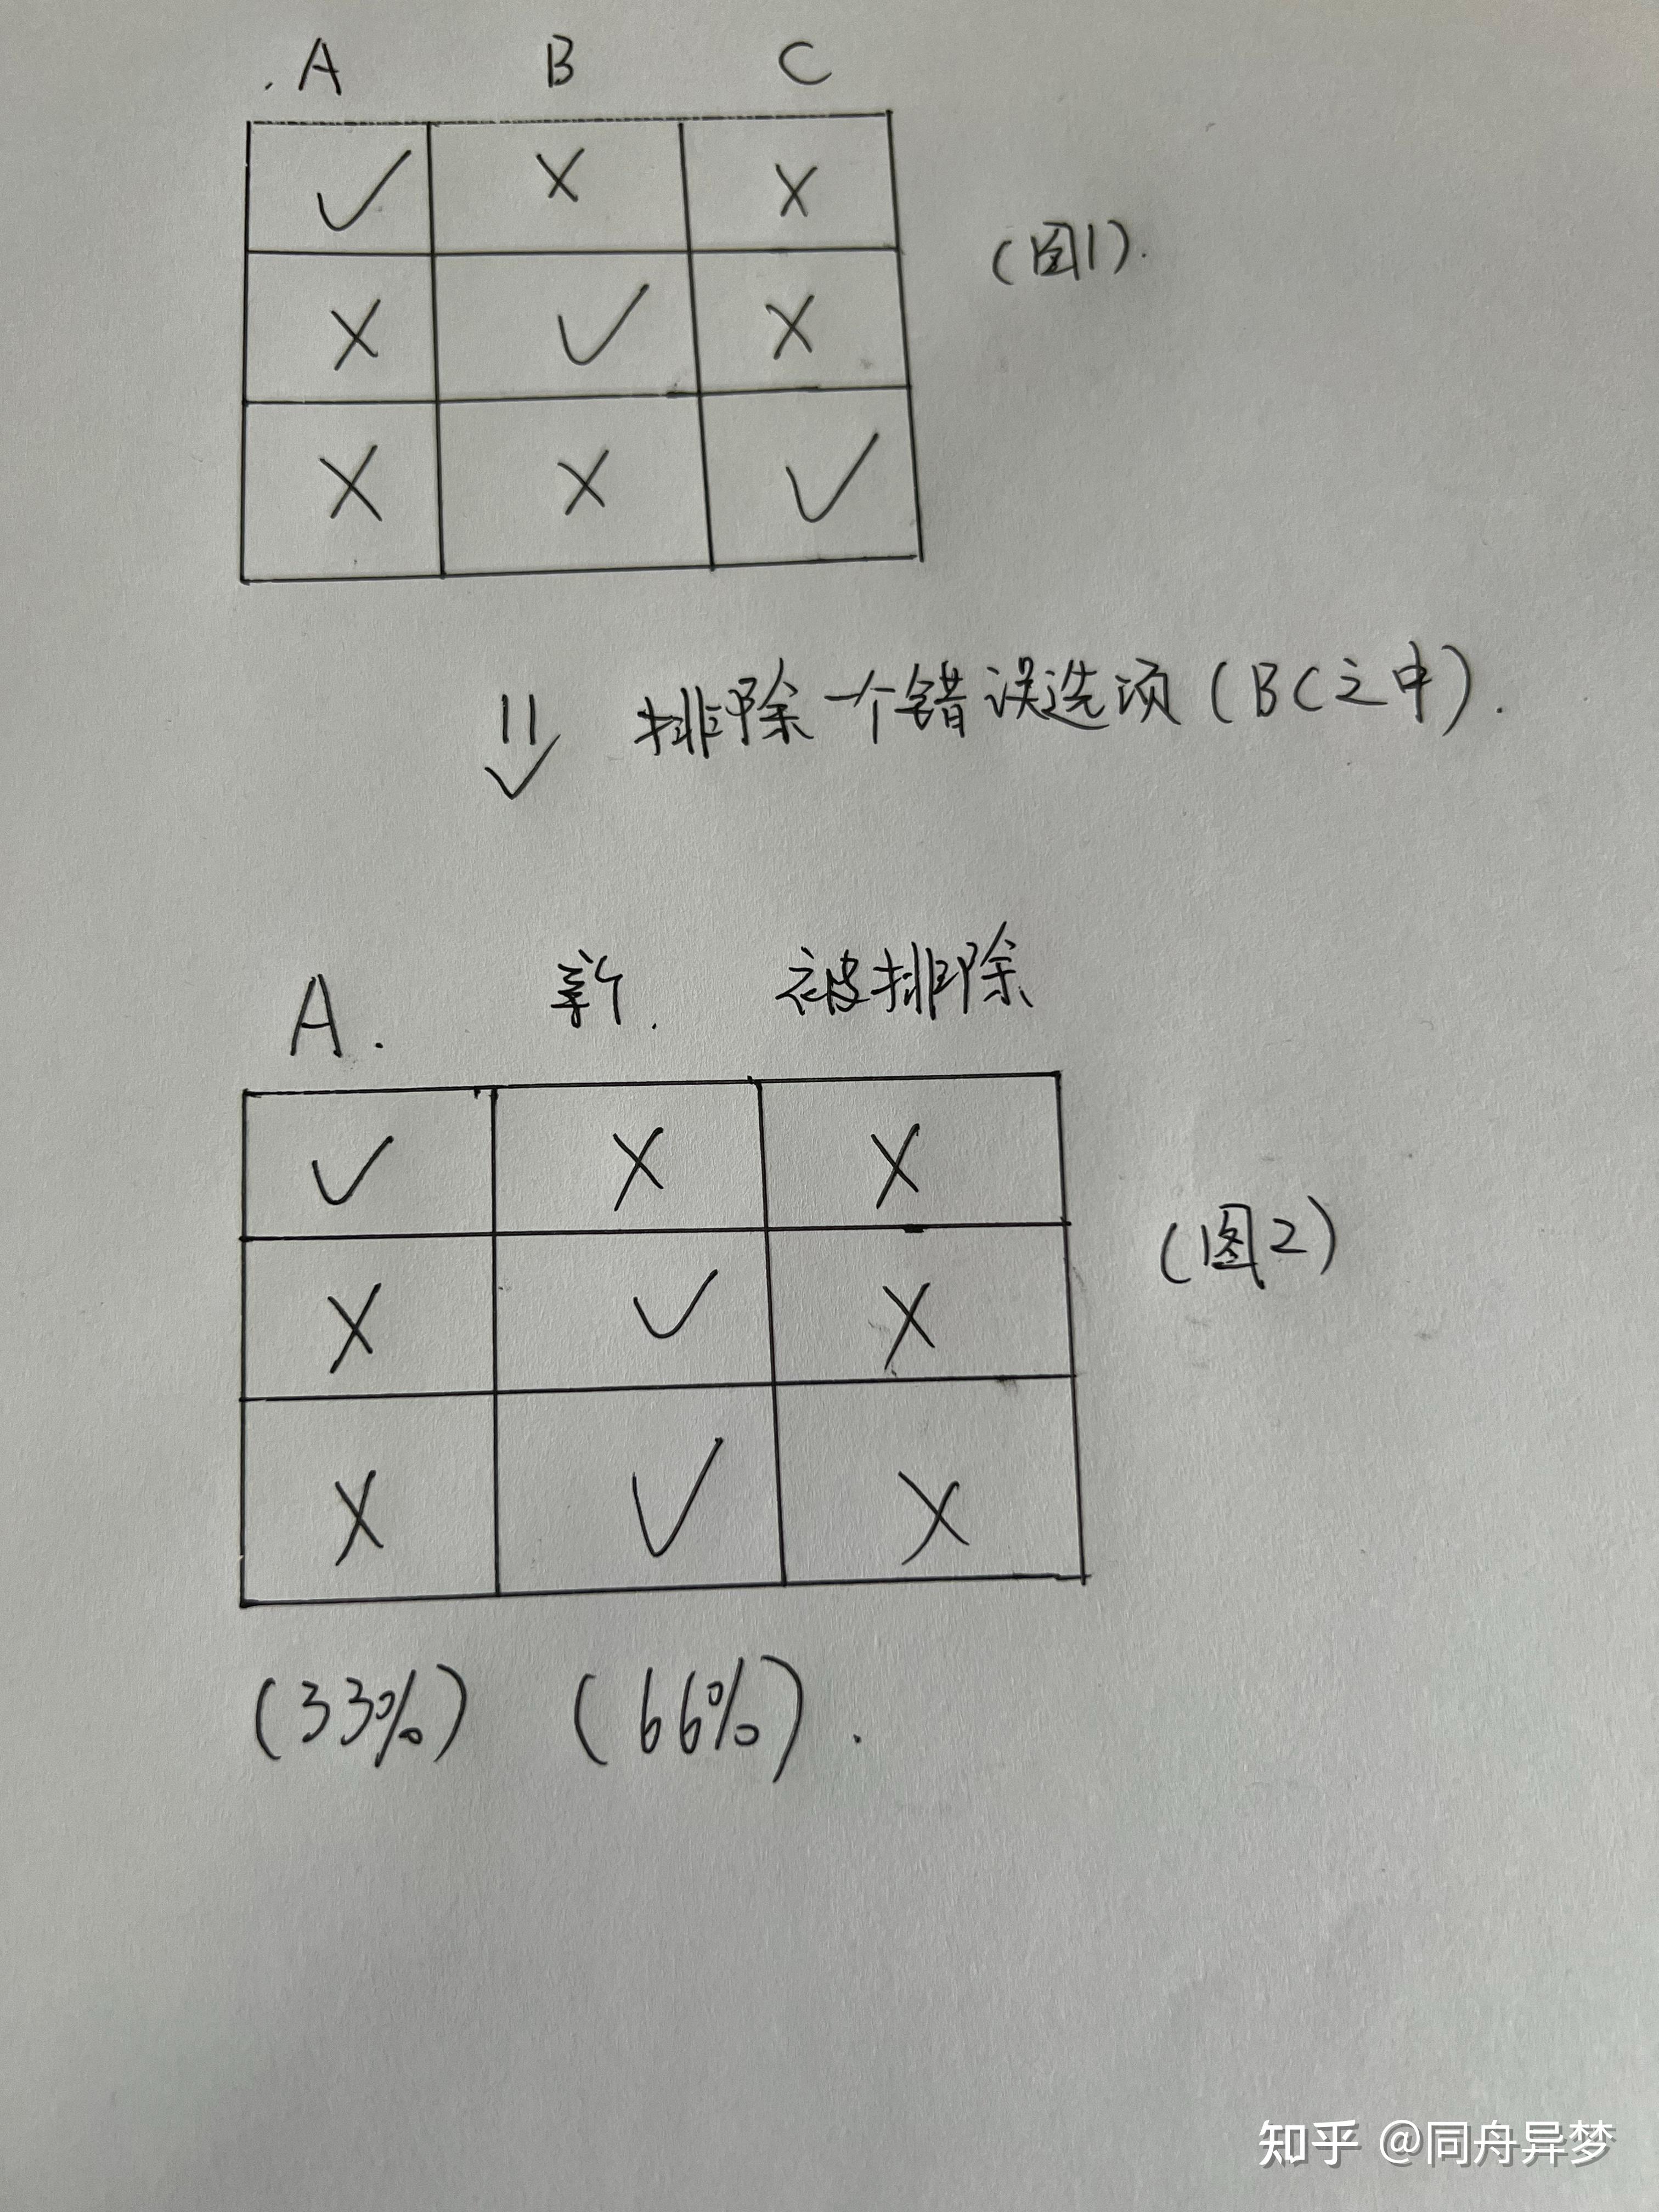 A B C
✓ × ×
(图1).
× ✓ ×
× × ✓
⇓ 排除一个错误选项(BC之中).
A. 新. 被排除
✓ × ×
(图2)
× ✓ ×
× ✓ ×
(33%) (66%).
知乎 @同舟异梦